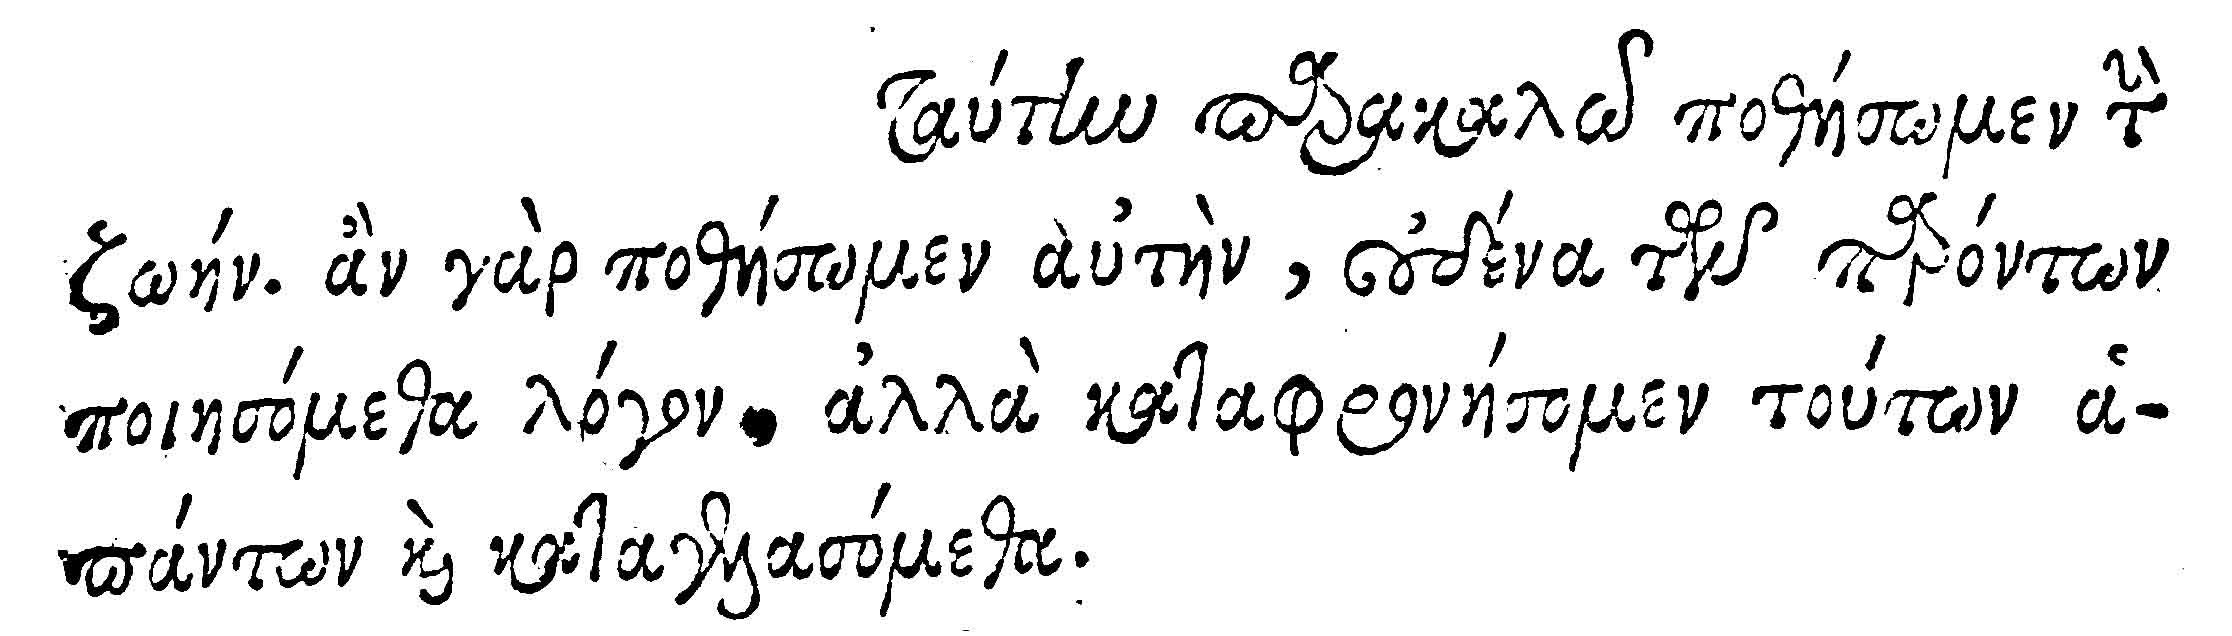 Ταύτην παρακαλῶ ποθήσωμεν τὴν
ζωήν. ἂν γὰρ ποθήσωμεν αὐτὴν, οὐδένα τῶν παρόντων
ποιησόμεθα λόγον. ἀλλὰ καταφρονήσομεν τούτων ἁ-
πάντων καὶ καταγελασόμεθα.